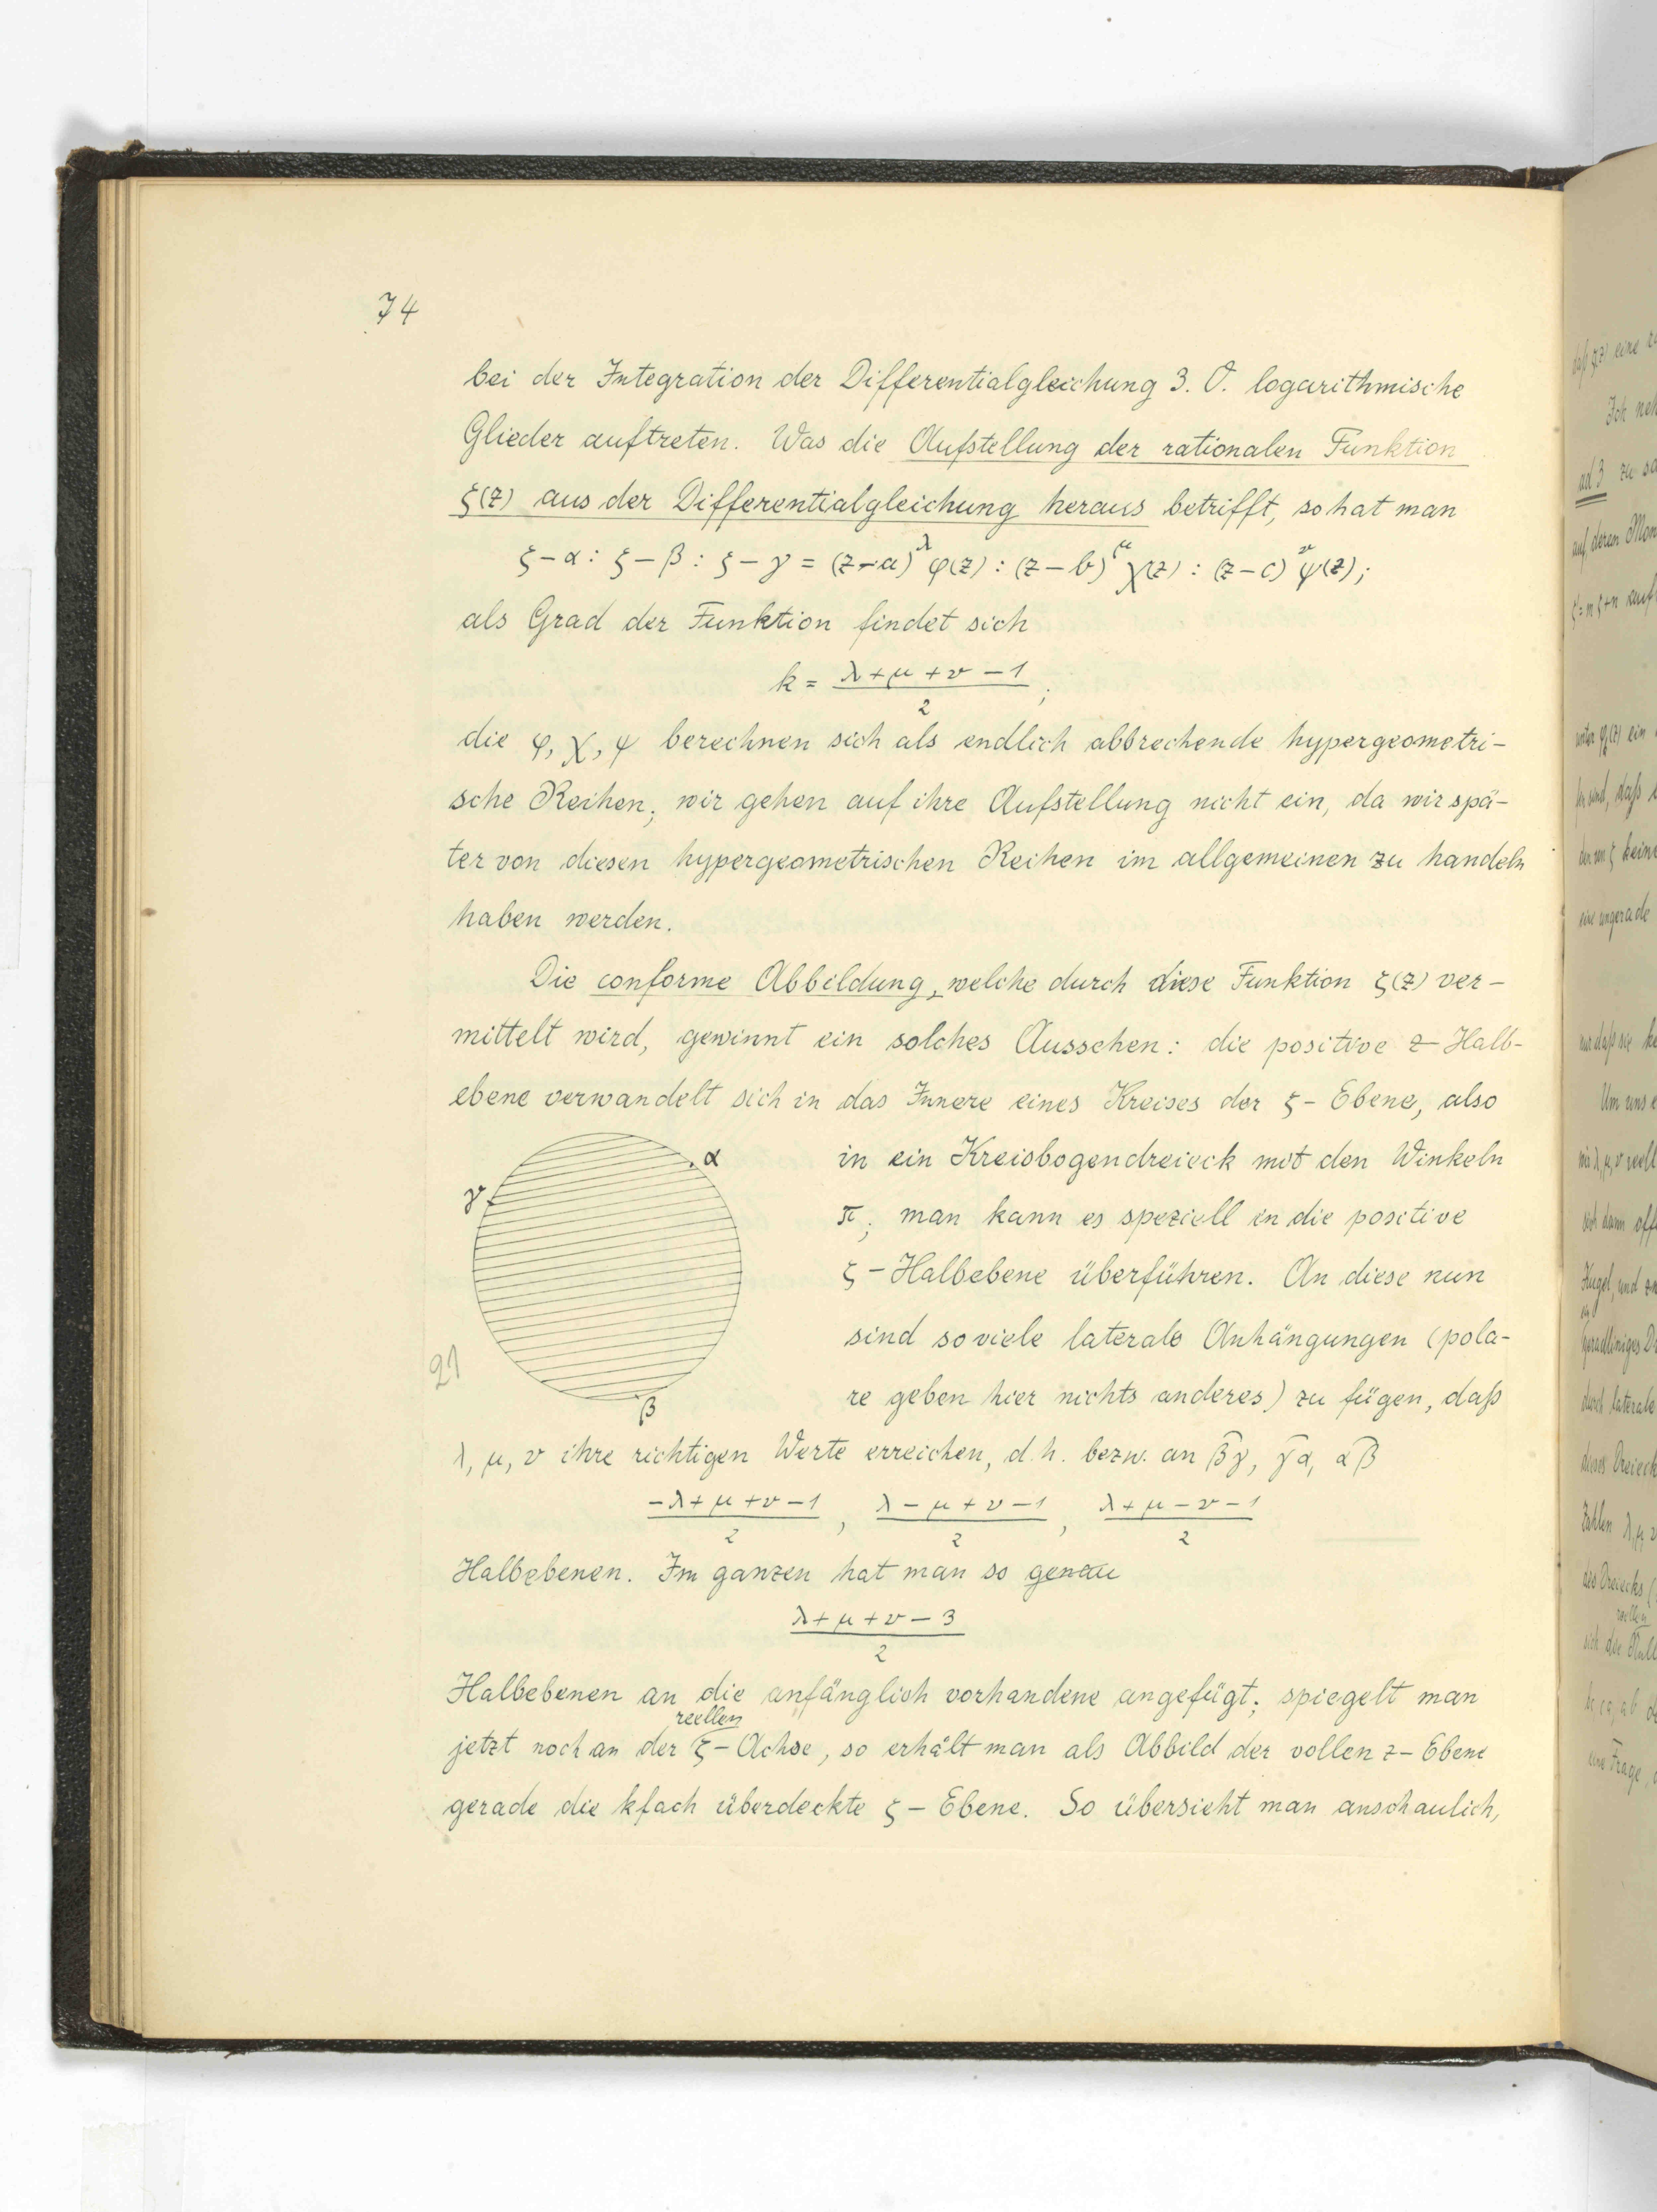 74
bei der Integration der Differentialgleichung 3. O. logarithmische
Glieder auftreten. Was die Aufstellung der rationalen Funktion
ζ(z) aus der Differentialgleichung heraus betrifft, so hat man
ζ-α : ζ-β : ζ-γ = (z-a)^λ φ(z) : (z-b)^μ χ(z) : (z-c)^ν ψ(z);
als Grad der Funktion findet sich
k = (λ+μ+ν-1)/2;
die φ, χ, ψ berechnen sich als endlich abbrechende hypergeometri-
sche Reihen; wir gehen auf ihre Aufstellung nicht ein, da wir spä-
ter von diesen hypergeometrischen Reihen im allgemeinen zu handeln
haben werden.
Die conforme Abbildung, welche durch diese Funktion ζ(z) ver-
mittelt wird, gewinnt ein solches Aussehen: die positive z-Halb-
ebene verwandelt sich in das Innere eines Kreises der ζ-Ebene, also
α
γ
β
21
in ein Kreisbogendreieck mit den Winkeln
π; man kann es speziell in die positive
ζ-Halbebene überführen. An diese nun
sind soviele laterale Anhängungen (pola-
re geben hier nichts anderes) zu fügen, daß
λ, μ, ν ihre richtigen Werte erreichen, d.h. bezw. an β͡γ, γ͡α, α͡β
(-λ+μ+ν-1)/2, (λ-μ+ν-1)/2, (λ+μ-ν-1)/2
Halbebenen. Im ganzen hat man so genau
(λ+μ+ν-3)/2
Halbebenen an die anfänglich vorhandene angefügt; spiegelt man
reellen
jetzt noch an der ζ-Achse, so erhält man als Abbild der vollen z-Ebene
gerade die kfach überdeckte ζ-Ebene. So übersieht man anschaulich,